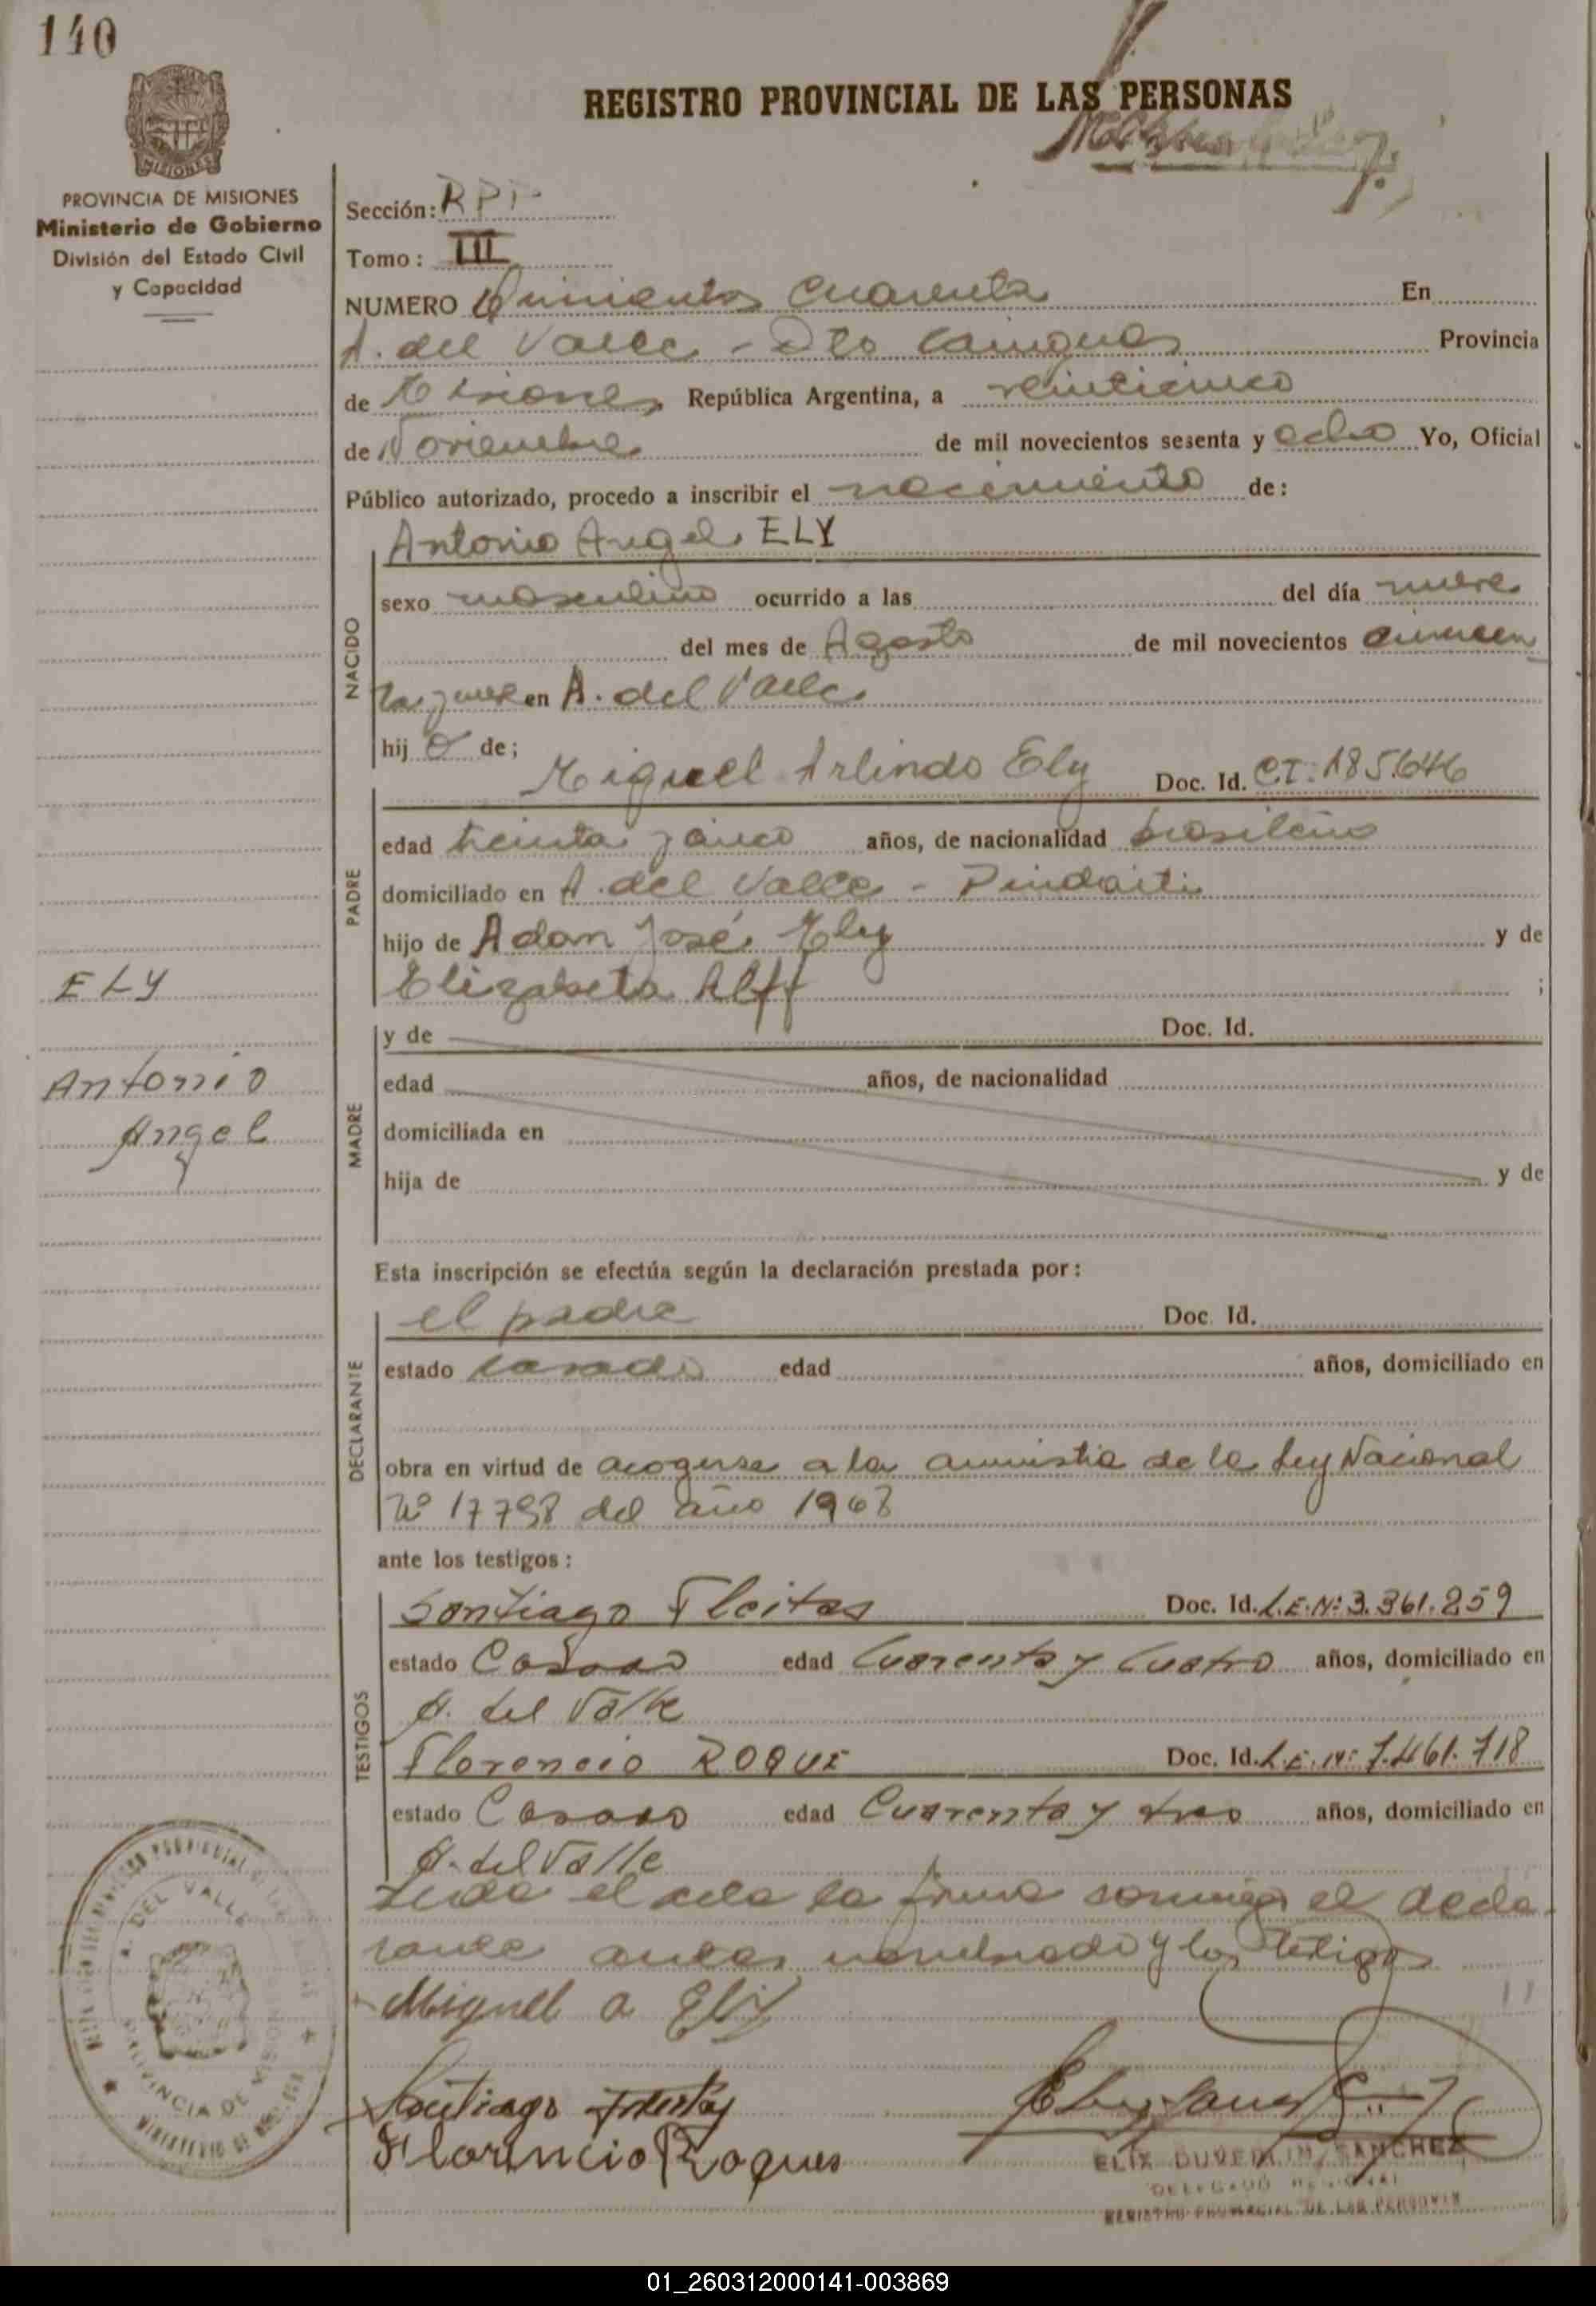 140
REGISTRO PROVINCIAL DE LAS PERSONAS
MISIONES
PROVINCIA DE MISIONES
Ministerio de Gobierno
División del Estado Civil
y Capacidad
Sección: RPP
Tomo: III
NUMERO Quinientos Cuarenta En
A. del Valle - Dto Cainguas Provincia
de Misiones República Argentina, a veinticinco
de Noviembre de mil novecientos sesenta y ocho Yo, Oficial
Público autorizado, procedo a inscribir el nacimiento de:
Antonio Angel ELY
NACIDO
sexo masculino ocurrido a las del día nueve
del mes de Agosto de mil novecientos cincuen
ta y en A. del Valle
hij o de;
Miguel Arlindo Ely Doc. Id. CI: 185.646
PADRE
edad treinta y cinco años, de nacionalidad brasileño
domiciliado en A. del Valle - Pindaiti
hijo de Adan José Ely y de
Elizabeta Alff ;
ELY
Antonio
Angel
MADRE
y de Doc. Id.
edad años, de nacionalidad
domiciliada en
hija de y de
Esta inscripción se efectúa según la declaración prestada por:
DECLARANTE
el padre Doc. Id.
estado casado edad años, domiciliado en
obra en virtud de acogerse a la amnistia de la Ley Nacional
Nº 17798 del año 1968
ante los testigos:
TESTIGOS
Santiago Fleitas Doc. Id. L.E.Nº 3.361.259
estado Casado edad Cuarenta y Cuatro años, domiciliado en
A. del Valle
Florencio ROQUE Doc. Id. L.E.Nº 7.461.718
estado Casado edad Cuarenta y tres años, domiciliado en
A. del Valle
Leida el acta la firma conmigo el decla-
rante antes nombrado y los testigos
Miguel a Ely
Santiago Fleitas
Florincio Roques
A. DEL VALLE
PROVINCIA DE MISIONES
SANCHEZ
DELEGADO REGIONAL
REGISTRO PROVINCIAL DE LAS PERSONAS
01_260312000141-003869